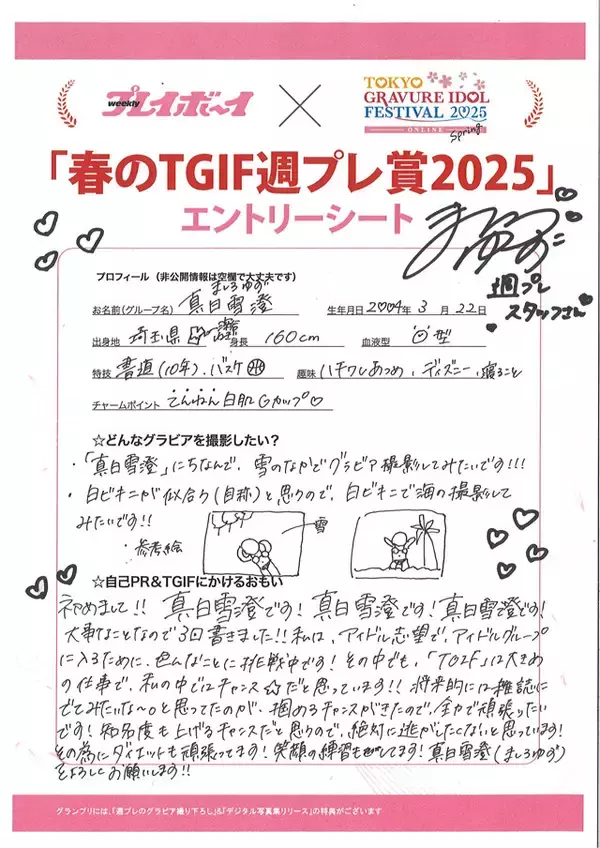 weekly プレイボーイ
×
TOKYO
GRAVURE IDOL
FESTIVAL 2025
ONLINE
Spring
「春のTGIF週プレ賞2025」
エントリーシート
週プレ
スタッフさん
プロフィール（非公開情報は空欄で大丈夫です）
ましろゆず
お名前(グループ名) 真白雪澄 生年月日 2004年 3月 22日
出身地 埼玉県 身長 160cm 血液型 型
特技 書道(10年)、バスケ 趣味 ハチワレあつめ、ディズニー、寝ること
チャームポイント 白肌Gカップ♡
☆どんなグラビアを撮影したい？
・「真白雪澄」にちなんで、雪のなかでグラビア撮影してみたいです!!!
・白ビキニが似合う(自称)と思うので、白ビキニで海の撮影して
みたいです!!
・参考絵
雪
☆自己PR&TGIFにかけるおもい
初めまして!! 真白雪澄です! 真白雪澄です! 真白雪澄です!
大事なことなので3回書きました!! 私は、アイドル志望で、アイドルグループ
に入るために、色んなことに挑戦中です! その中でも、「TGIF」は大きめ
の仕事で、私の中ではチャンス☆だと思っています!! 将来的には雑誌に
でてみたいな〜。と思ってたのが、掴めるチャンスがきたので、全力で頑張りたい
です! 知名度も上げるチャンスだと思うので、絶対に逃がしたくないと思っています!
その為にダイエットも頑張ってます! 笑顔の練習もしてます! 真白雪澄(ましろゆず)
をよろしくお願いします!!
グランプリには、「週プレのグラビア撮り下ろし」&「デジタル写真集リリース」の特典がございます